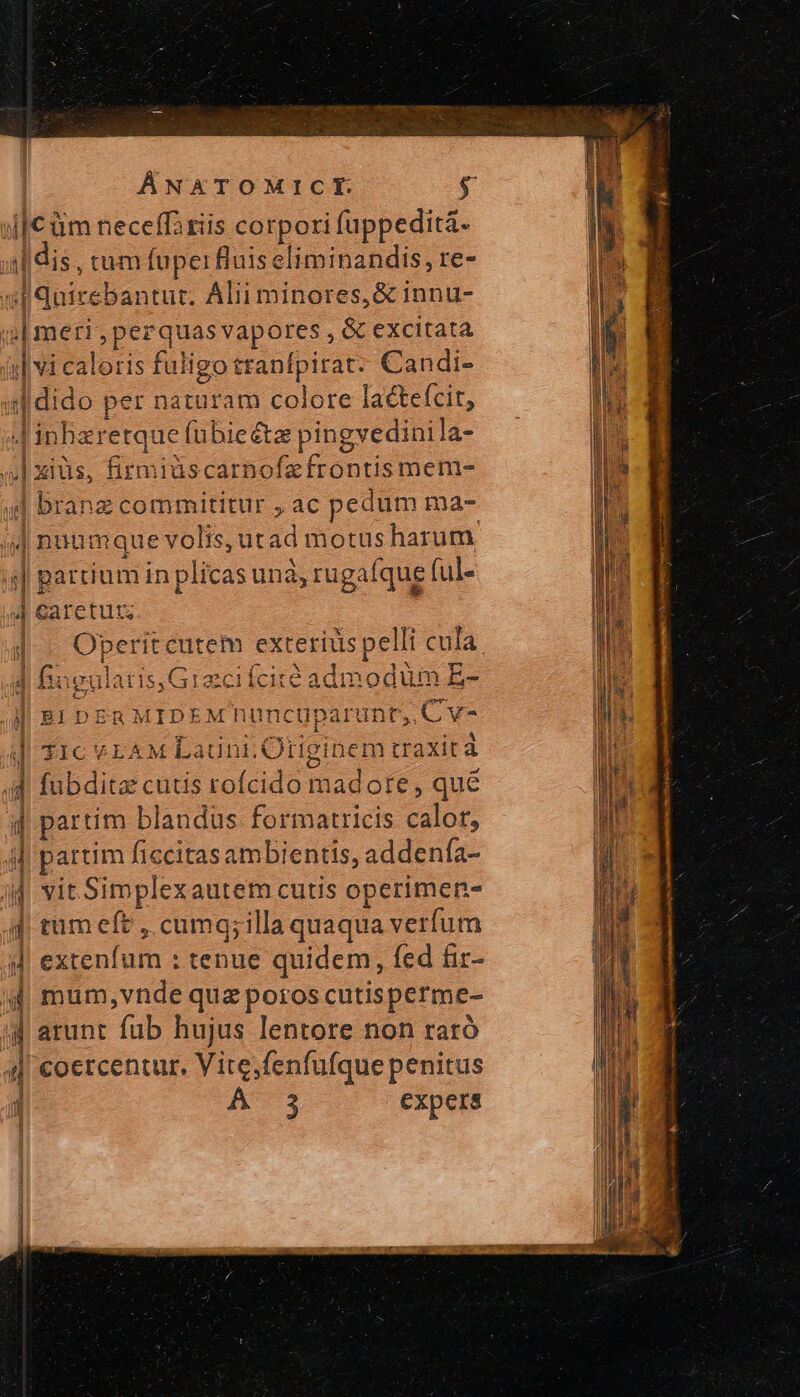 ANATOMICÆ 5
cùm necessariis corpori suppeditā-
dis, tum superfluis eliminandis, re-
quirebantur. Alii minores, & innu-
meri, per quas vapores, & excitata
vi caloris fuligo transpirat. Candi-
dido per naturam colore lactescit,
inhæretque subiectæ pingvedini la-
xiùs, firmiùs carnosæ frontis mem-
branæ commititur, ac pedum ma-
nuumque volis, ut ad motus harum
partium in plicas unà, rugasque sul-
caretur.
Operit cutem exteriùs pelli cula
singularis, Græci scitè admodùm E-
PIDERMIDEM nuncuparunt, CV-
TICVLAM Latini. Originem traxit à
subditæ cutis roscido madore, quē
partim blandus formatricis calor,
partim siccitas ambientis, addensa-
vit Simplex autem cutis operimen-
tum est, cumq; illa quaqua versum
extensum: tenue quidem, sed fir-
mum, vnde quæ poros cutis perme-
arunt sub hujus lentore non rarò
coercentur. Vitę, sensusque penitus
A 3 expers